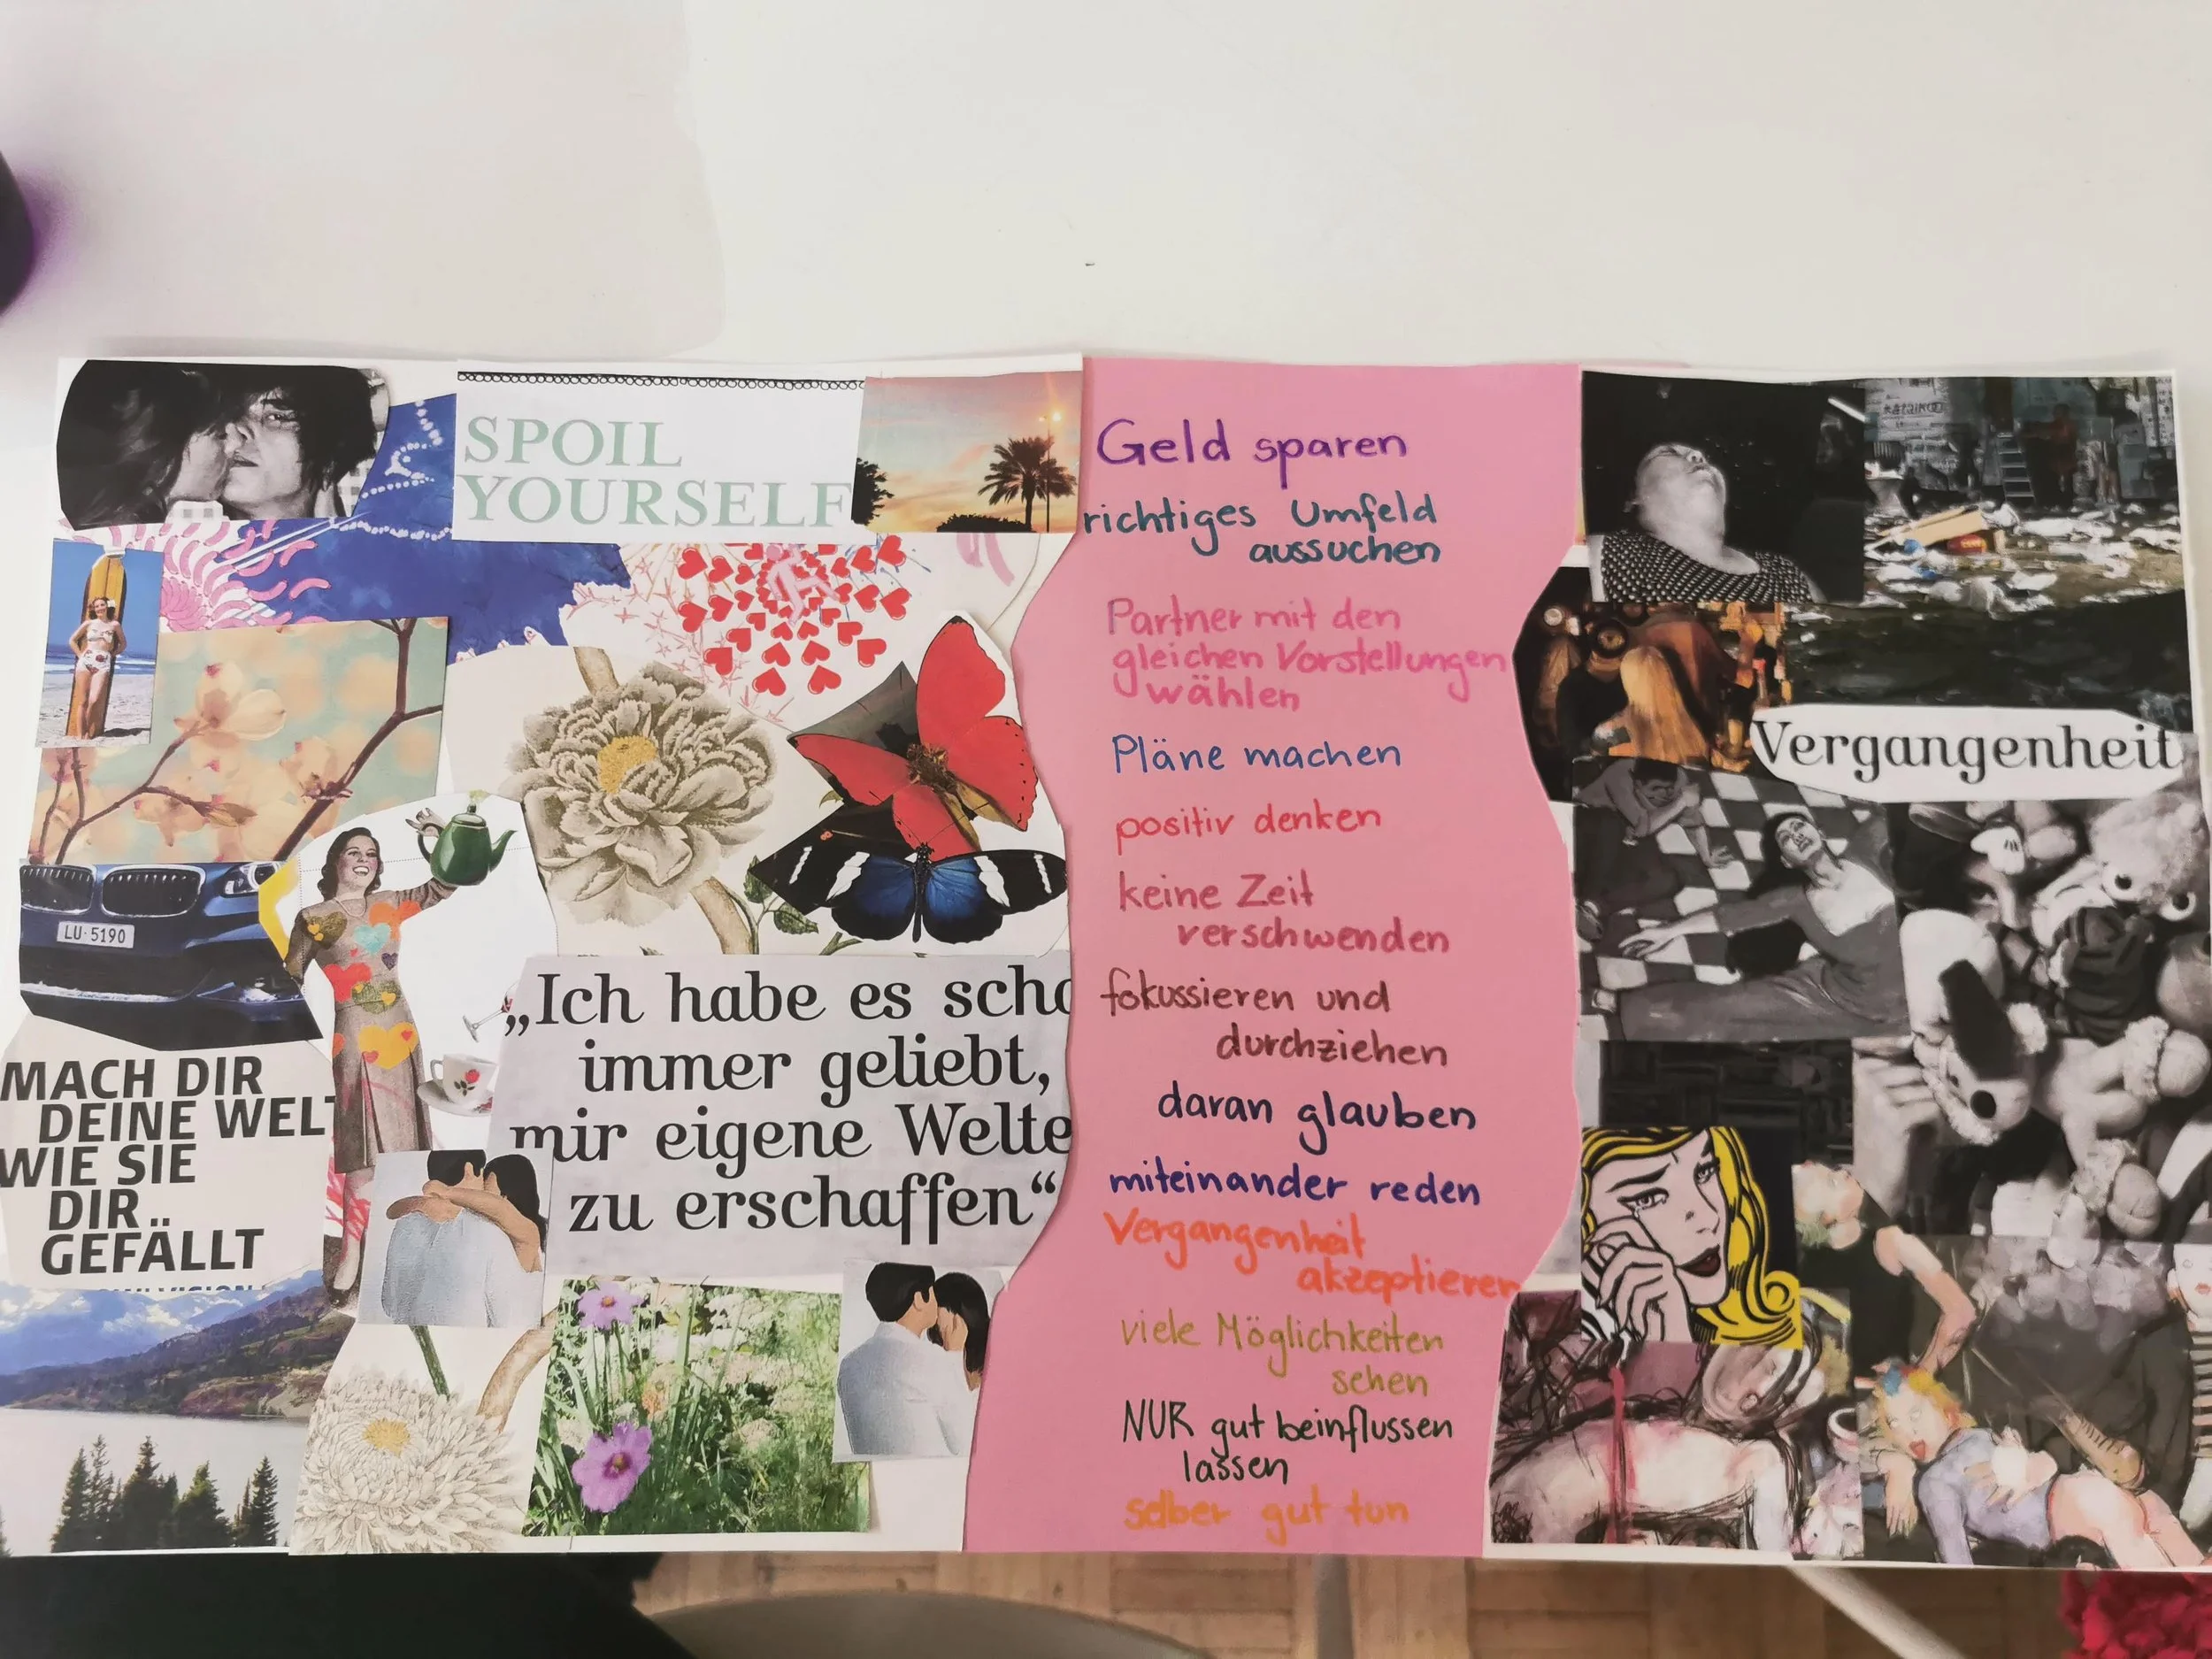 SPOIL
YOURSELF
LU·5190
MACH DIR
DEINE WELT
WIE SIE
DIR
GEFÄLLT
„Ich habe es scho
immer geliebt,
mir eigene Welte
zu erschaffen“
Geld sparen
richtiges Umfeld
aussuchen
Partner mit den
gleichen Vorstellungen
wählen
Pläne machen
positiv denken
keine Zeit
verschwenden
fokussieren und
durchziehen
daran glauben
miteinander reden
Vergangenheit
akzeptieren
viele Möglichkeiten
sehen
NUR gut beinflussen
lassen
selber gut tun
Vergangenheit